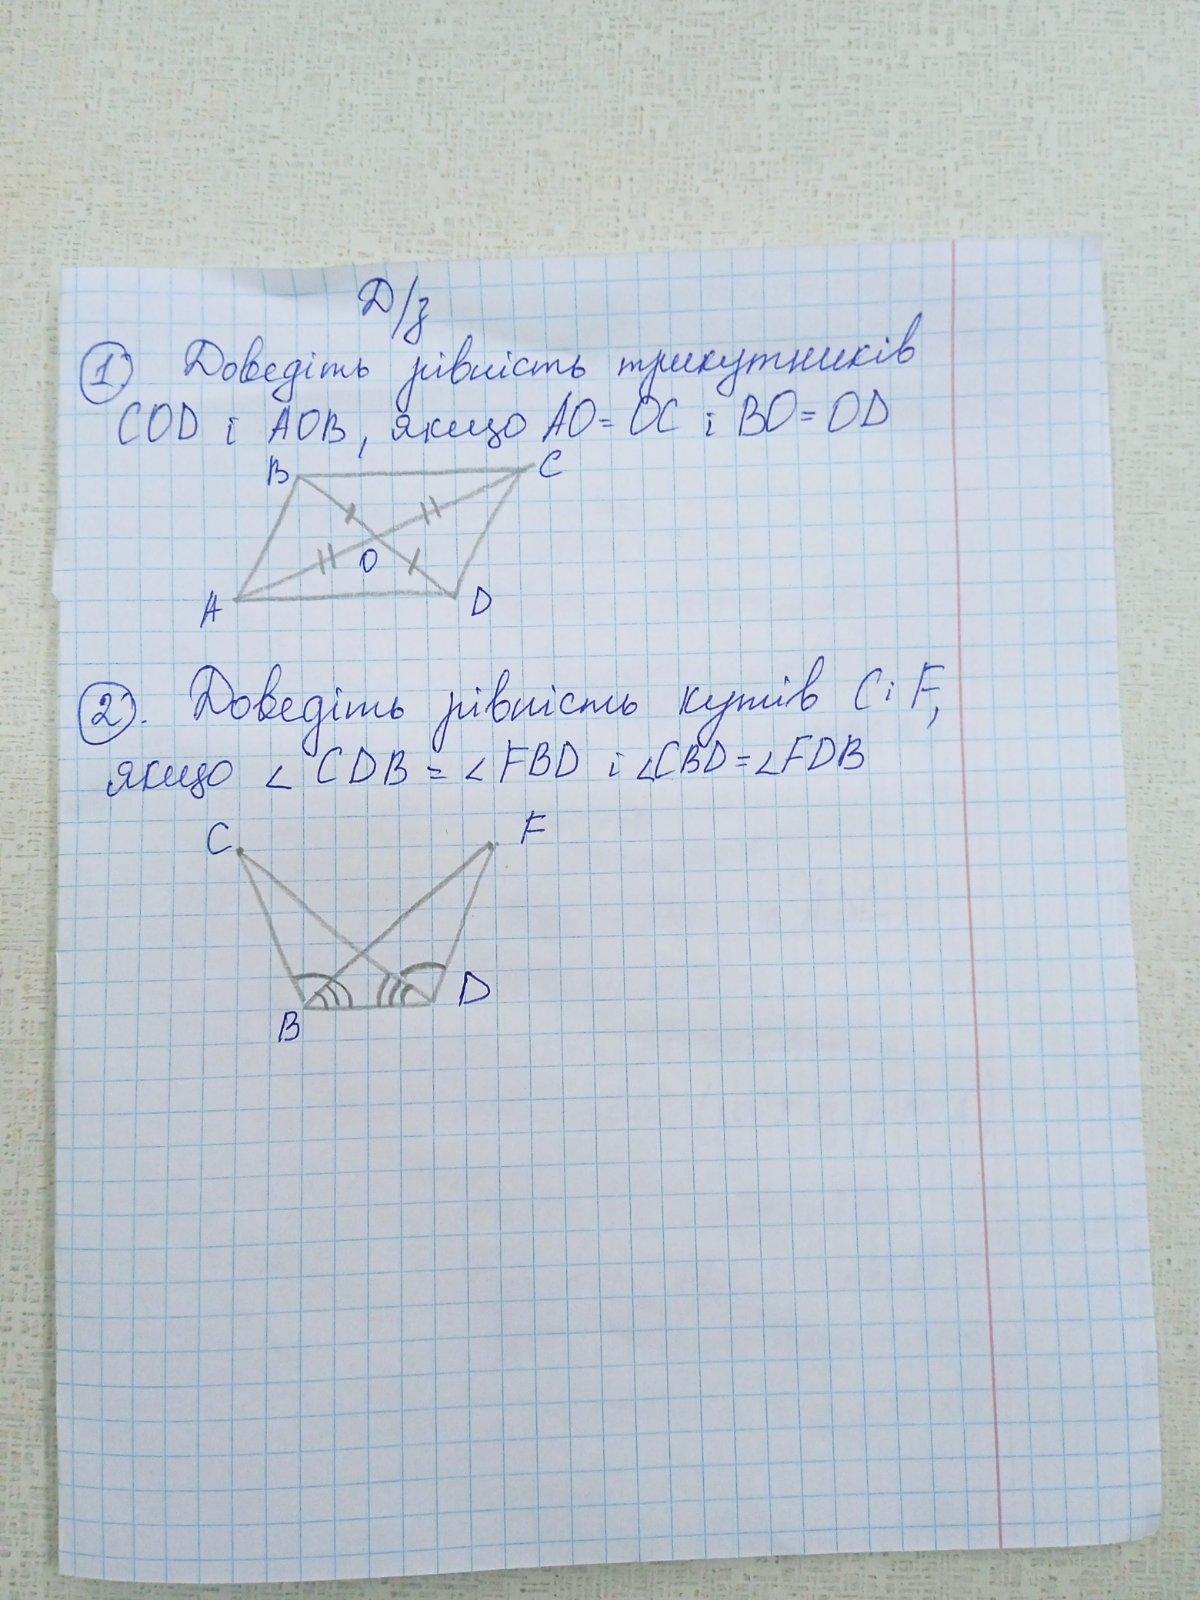 Д/з
1 Доведіть рівність трикутників
COD і AOB, якщо AO=OC і BO=OD
B
C
O
A
D
2. Доведіть рівність кутів C і F,
якщо ∠CDB = ∠FBD і ∠CBD=∠FDB
C
F
D
B